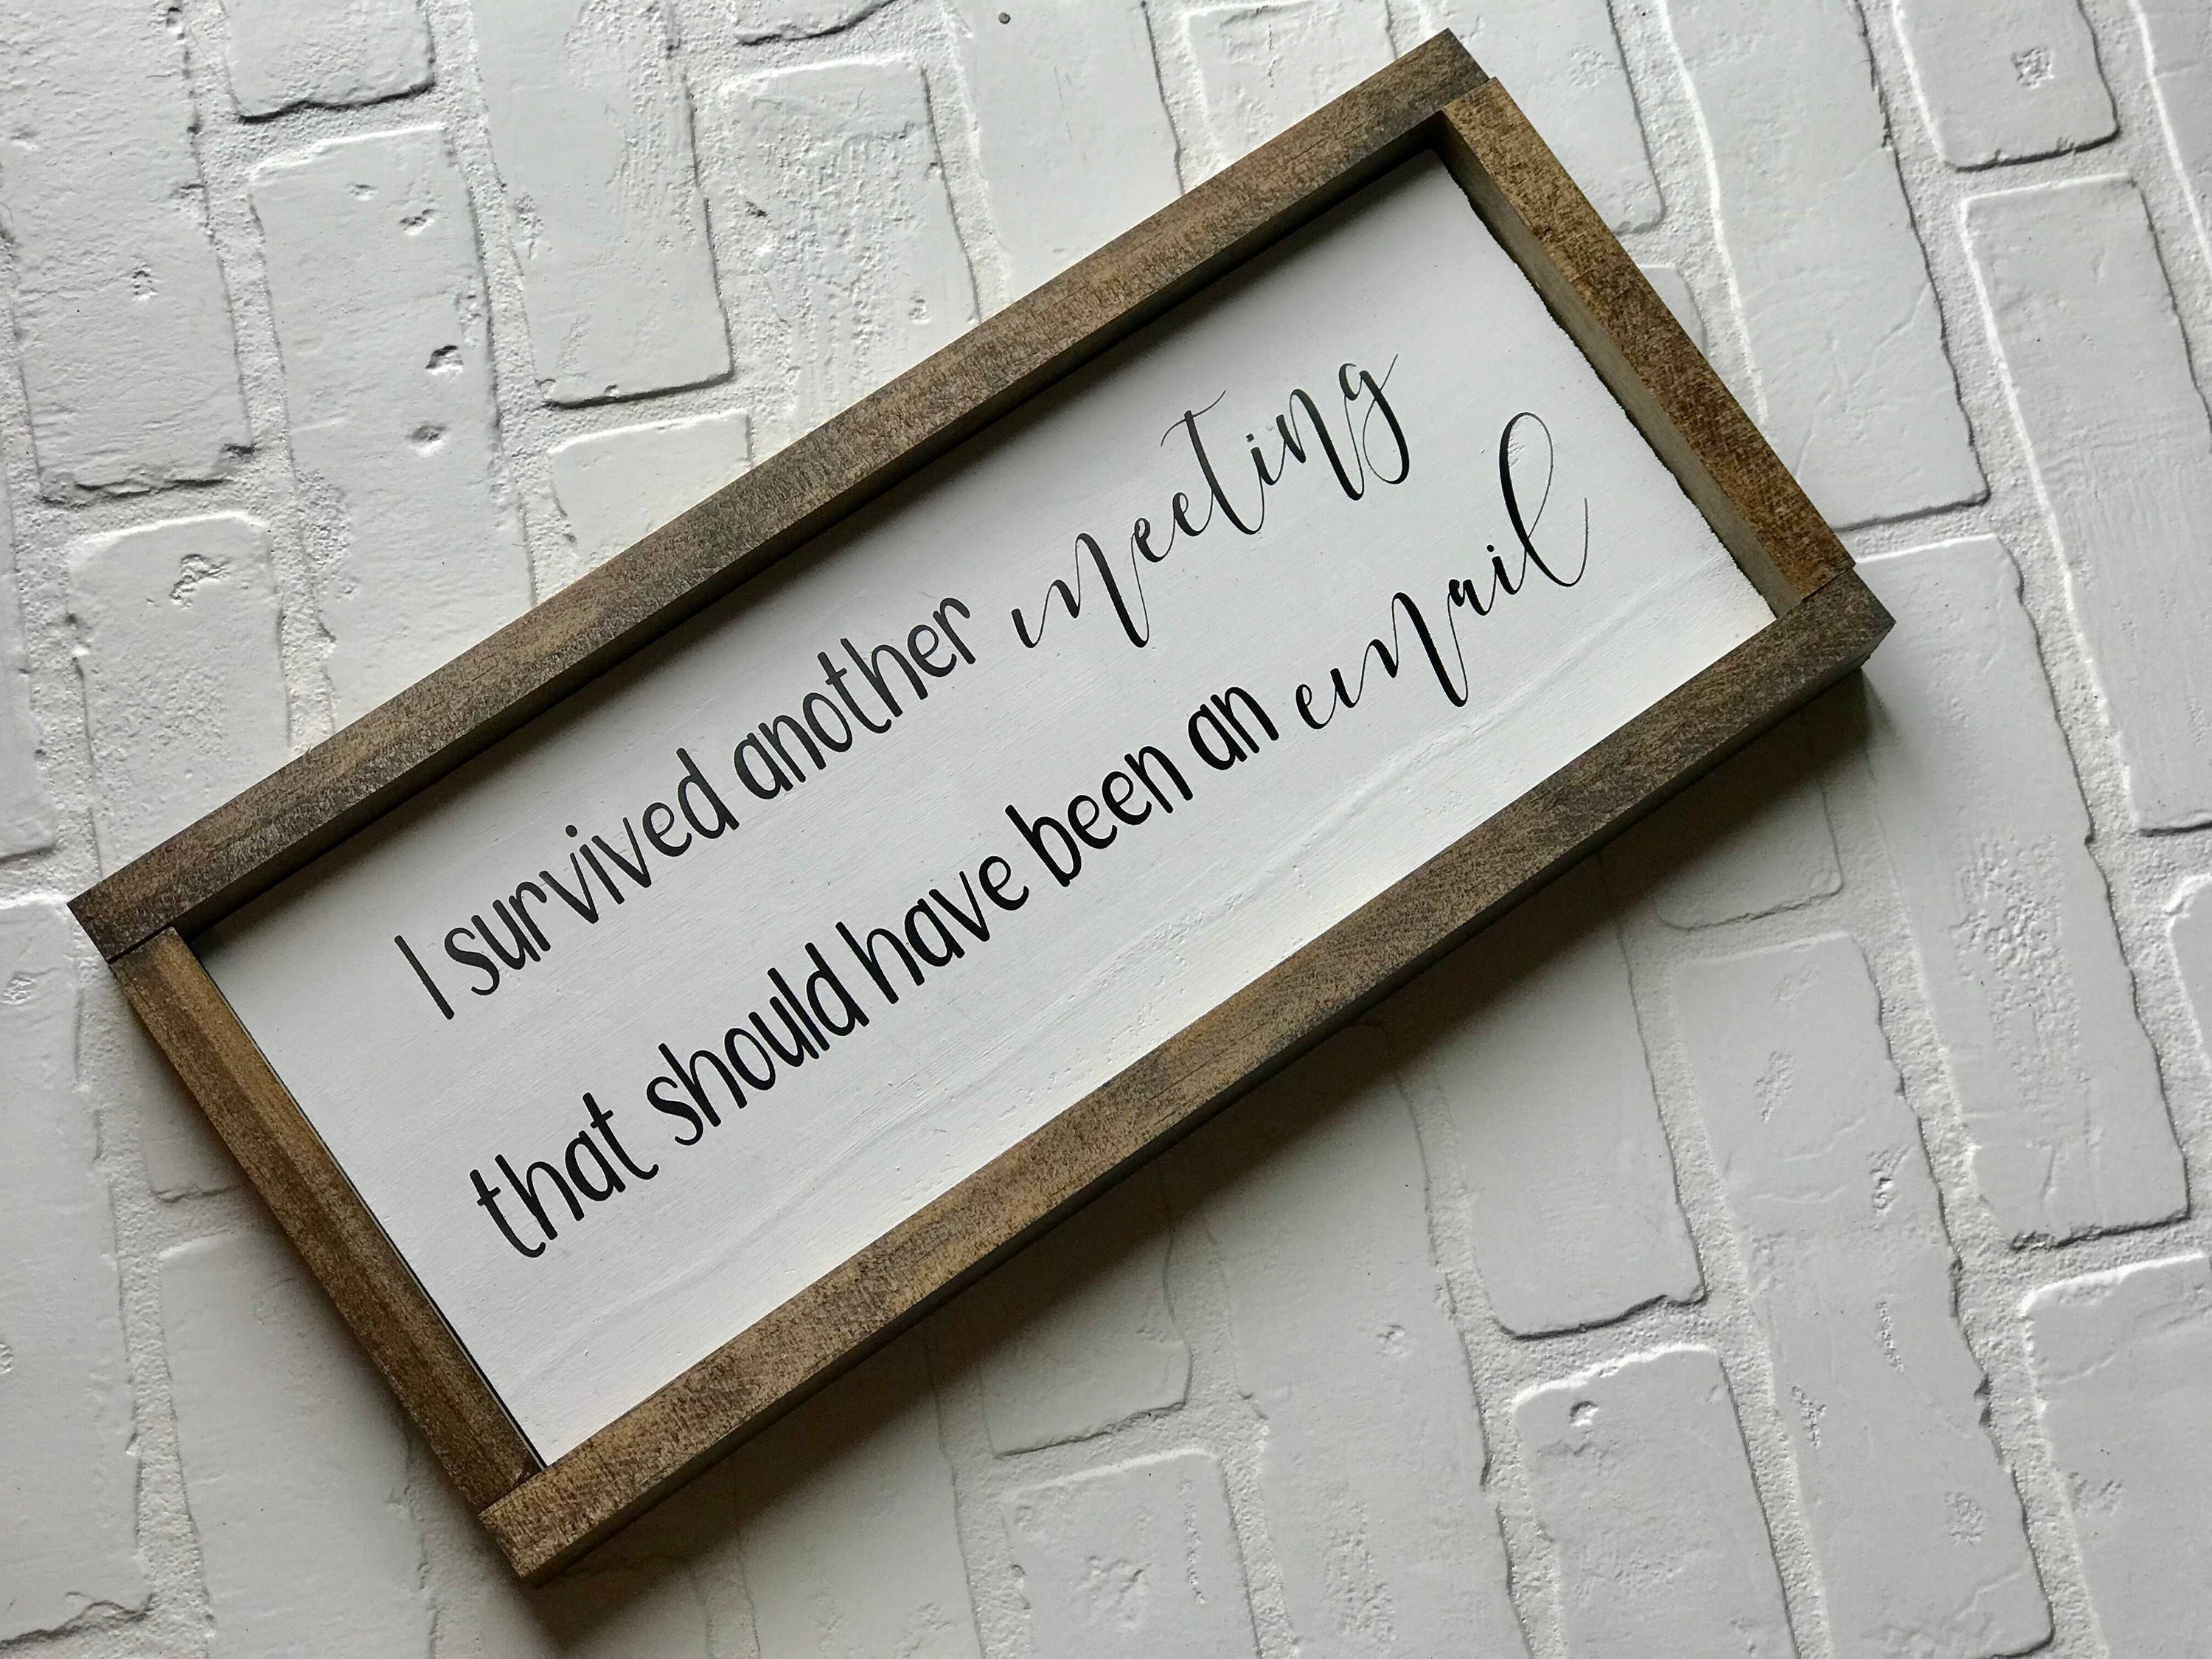 I survived another meeting
that should have been an email